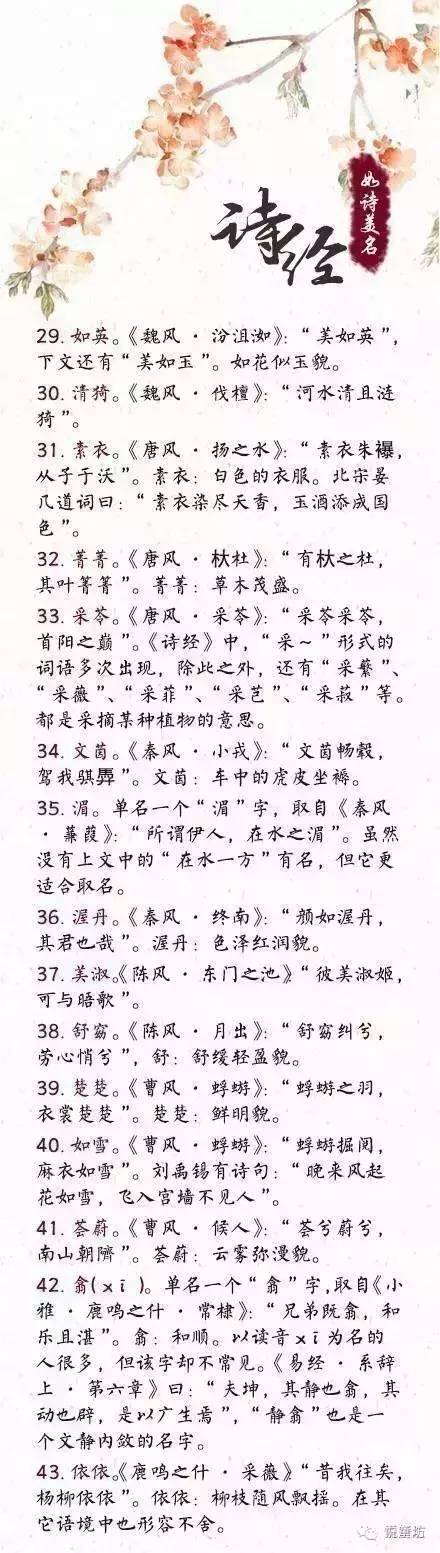 如诗美名
诗经
29. 如英。《魏风 · 汾沮洳》：“美如英”，
下文还有“美如玉”。如花似玉貌。
30. 清猗。《魏风 · 伐檀》：“河水清且涟
猗”。
31. 素衣。《唐风 · 扬之水》：“素衣朱襮，
从子于沃”。素衣：白色的衣服。北宋晏
几道词曰：“素衣染尽天香，玉酒添成国
色”。
32. 菁菁。《唐风 · 杕杜》：“有杕之杜，
其叶菁菁”。菁菁：草木茂盛。
33. 采苓。《唐风 · 采苓》：“采苓采苓，
首阳之巅”。《诗经》中，“采～”形式的
词语多次出现，除此之外，还有“采蘩”、
“采薇”、“采菲”、“采芑”、“采菽”等。
都是采摘某种植物的意思。
34. 文茵。《秦风 · 小戎》：“文茵畅毂，
驾我骐馵”。文茵：车中的虎皮坐褥。
35. 湄。单名一个“湄”字，取自《秦风
· 蒹葭》：“所谓伊人，在水之湄”。虽然
没有上文中的“在水一方”有名，但它更
适合取名。
36. 渥丹。《秦风 · 终南》：“颜如渥丹，
其君也哉”。渥丹：色泽红润貌。
37. 美淑。《陈风 · 东门之池》“彼美淑姬，
可与晤歌”。
38. 舒窈。《陈风 · 月出》：“舒窈纠兮，
劳心悄兮”，舒：舒缓轻盈貌。
39. 楚楚。《曹风 · 蜉蝣》：“蜉蝣之羽，
衣裳楚楚”。楚楚：鲜明貌。
40. 如雪。《曹风 · 蜉蝣》：“蜉蝣掘阅，
麻衣如雪”。刘禹锡有诗句：“晚来风起
花如雪，飞入宫墙不见人”。
41. 荟蔚。《曹风 · 候人》：“荟兮蔚兮，
南山朝隮”。荟蔚：云雾弥漫貌。
42. 翕(xī)。单名一个“翕”字，取自《小
雅 · 鹿鸣之什 · 常棣》：“兄弟既翕，和
乐且湛”。翕：和顺。以读音xī为名的
人很多，但该字却不常见。《易经 · 系辞
上 · 第六章》曰：“夫坤，其静也翕，其
动也辟，是以广生焉”，“静翕”也是一
个文静内敛的名字。
43. 依依。《鹿鸣之什 · 采薇》“昔我往矣，
杨柳依依”。依依：柳枝随风飘摇。在其
它语境中也形容不舍。